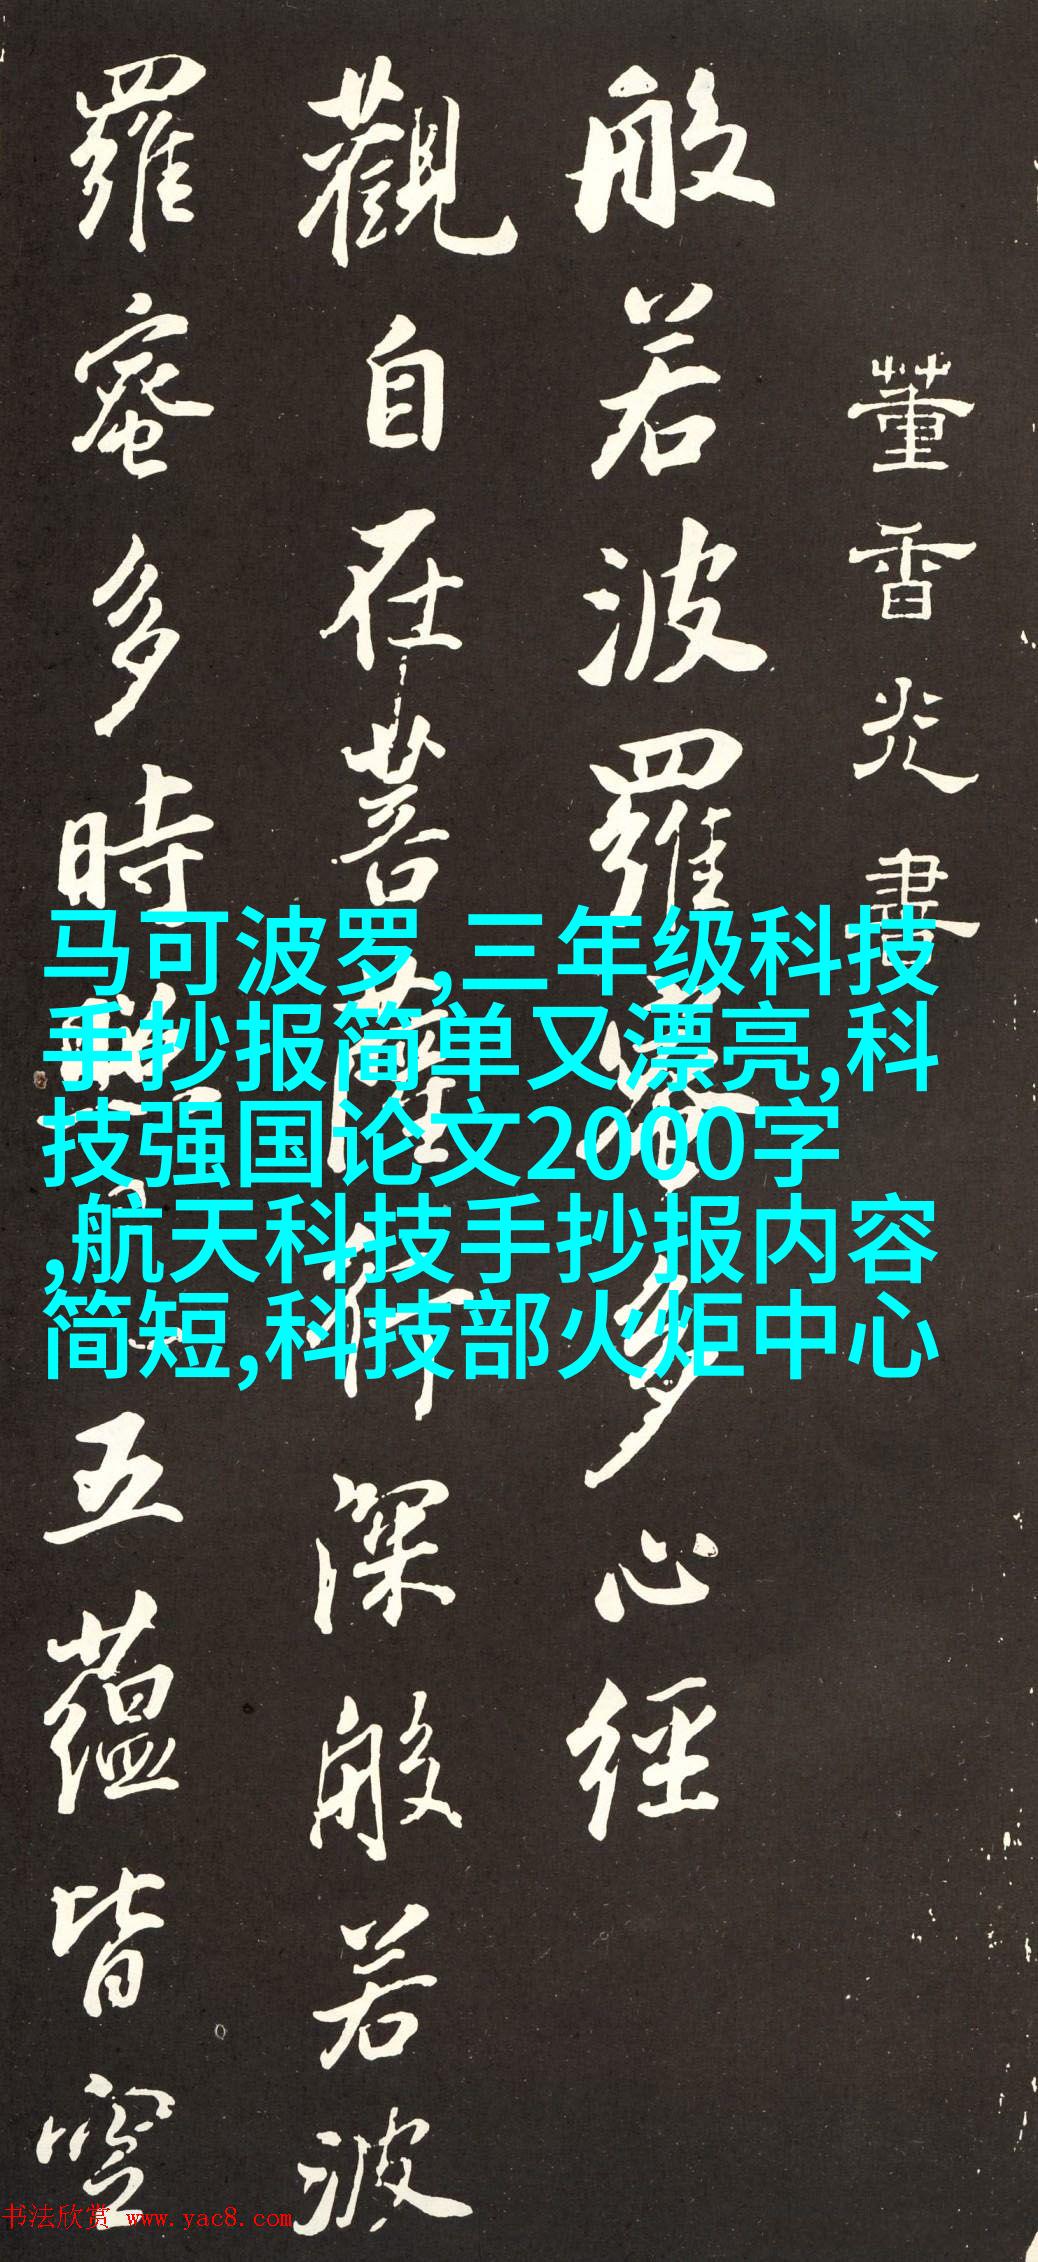 董香光書
般若波羅蜜多心經
觀自在菩薩行深般若波
羅蜜多時照見五蘊皆空
马可波罗,三年级科技
手抄报简单又漂亮,科
技强国论文2000字
,航天科技手抄报内容
简短,科技部火炬中心
书法欣赏 www.yac8.com